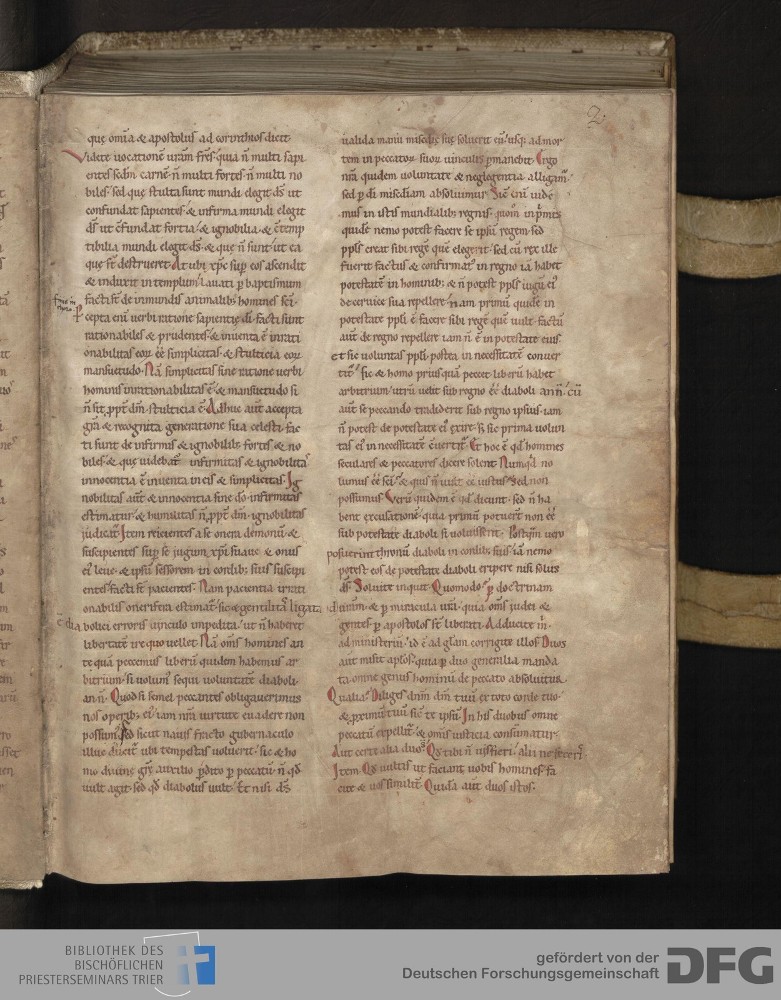 2
quę omia & apostolus ad corinthios dicit.
Videte uocationē uram fr̄es quia n̄ multi sapi
entes scdm carnē n̄ multi fortes n̄ multi no
biles sed quę stulta sunt mundi elegit ds̄ ut
confundat sapientes & infirma mundi elegit
ds̄ ut c̄fundat fortia & ignobilia & c̄temp
tibilia mundi elegit ds̄ & que n̄ sunt ut ea
que st̄ destrueret At ubi xpc sup̄ eos ascendit
& induxit in templum lauati p baptismum
facti st̄ de inmundis animalibꝫ homines sc̄i
P̱cepta eni uerbi ratione sapientię di facti sunt
rationabiles & prudentes & inuenta ē inrati
onabilitas eorꝝ ēē simplicitas & stulticia eorꝝ
mansuetudo Nā simplicitas sine ratione uerbi
hominis inrationabilitas ē & mansuetudo si
n̄ sit ppt dm̄ stulticia ē Adhuc aut̄ accepta
gr̄a & recognita generatione sua celesti fac
ti sunt de infirmis & ignobilibꝫ fortes & no
biles & quę uidebat̄ infirmitas & ignobilitas
innocentia ē inuenta in eis & simplicitas Ig
nobilitas aut̄ & innocentia sine dō infirmitas
estimatur & humilitas n̄ ppt dm̄ ignobilitas
iudicat̄ Item reicientes a se onera demonū &
suscipientes sup̄ se iugum xp̄i suaue & onus
ei leue & ipsū sessorem in cordibꝫ suis suscipi
entes facti st̄ pacientes Nam pacientia inrati
onabilis onerifera estimat̄ sic & gentilitas ligata
diabolici erroris uinculo inpedita ut n̄ haberet
libertatē ire quo uellet Nā oms̄ homines an
te quā peccemus liberū quidem habemus ar
bitrium si uolum̄ sequi uoluntatē diaboli
an n̄ Quod si semel peccantes obligauerimus
nos operibꝫ ei iam nr̄a uirtute euadere non
possum̄ Sed sicut nauis fracto gubernaculo
illuc ducit̄ ubi tempestas uoluerit sic & ho
mo diuinę gr̄ę auxilio pdito p peccatū n̄ qd̄
uult agit sed qd̄ diabolus uult Et nisi ds̄
ualida manu misedię suę soluerit eū usqꝫ ad mor
tem in peccatorꝝ suorꝝ uinculis pmanebit Ergo
nr̄a quidem uoluntate & neglegentia alligam̄
sed p di misediam absoluimur Sic eni uide
mus in istis mundialibꝫ regnis quom̄ in primis
quidē nemo potest facere se ipsū regem sed
ppls̄ creat sibi regē quē elegerit sed cū rex ille
fuerit factus & confirmat in regno iā habet
potestatē in hominibꝫ & n̄ potest ppls̄ iugū ei
de ceruice sua repellere nam primū quidē in
potestate ppli ē facere sibi regē quē uult factū
aut̄ de regno repellere iam n̄ ē in potestate eius
et sic uoluntas ppli postea in necessitatē conuer
tit̄ sic & homo priusquā peccet liberū habet
arbitrium utrū uelit sub regno ēē diaboli an n̄ cū
aut̄ se peccando tradiderit sub regno ipsius iam
n̄ potest de potestate ei exire & sic prima uolun
tas ei in necessitatē c̄uertit̄ Et hoc ē qd̄ homines
seculares & peccatores dicere solent Numqd̄ no
lumus ēē sc̄i & quis n̄ uult ēē iustus sed non
possumus Verū quidem ē id dicunt sed n̄ ha
bent excusationē quia primū potuert̄ non ēē
sub potestate diaboli si uoluissent Postqm̄ uero
posuerint thronū diaboli in cordibꝫ suis iā nemo
potest eos de potestate diaboli eripere nisi solus
ds̄ Soluite inquit Quomodo p doctrinam
diuinam & p miracula uram quia oms̄ iudei &
gentes p apostolos st̄ liberati Adducite m̄
ad ministeriū id ē ad gl̄am corrigite illos Duos
aut̄ misit aplos quia p duo generalia manda
ta omne genus hominū de peccato absoluitur
Qualia Diliges dnm̄ dm̄ tuū ex toto corde tuo
& pximū tuū sic te ipsū In his duobus omne
peccatū repellit̄ & omis̄ iusticia consumatur
Aut certe alia duo Qs̄ tibi n̄ uis fieri alii ne feceris
Item Qs̄ uultis ut faciant uobis homines fa
cite & uos similit̄ Quida aut̄ duos istos
BIBLIOTHEK DES
BISCHÖFLICHEN
PRIESTERSEMINARS TRIER
gefördert von der
Deutschen Forschungsgemeinschaft
DFG